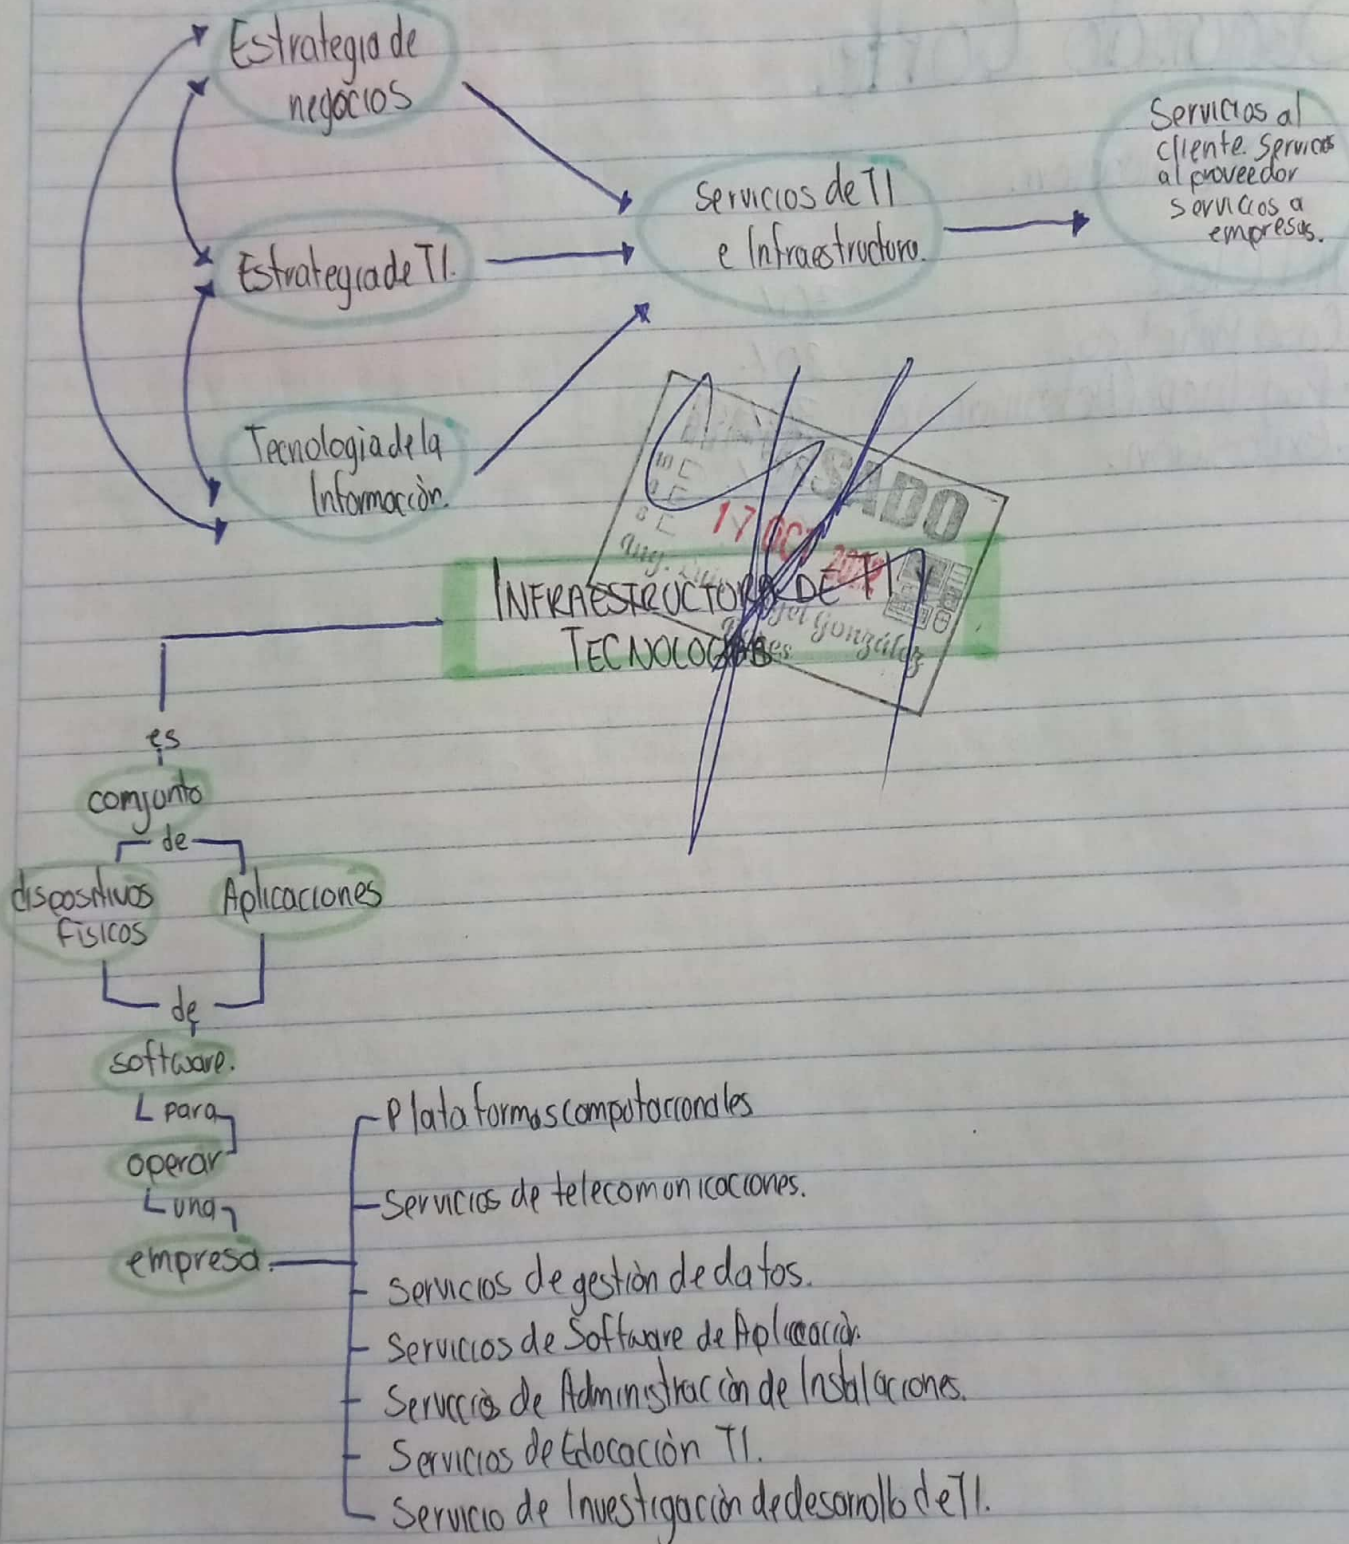 Estrategia de
negocios
Servicios al
cliente. Servicios
al proveedor
servicios a
empresas.
Servicios de TI
e Infraestructura.
Estrategia de TI.
Tecnologia de la
Información.
SADO
17 OCT
Ing.
González
INFRAESTRUCTURA DE TI
TECNOLOGIAS
es
conjunto
de
dispositivos
físicos
Aplicaciones
de
software.
para
operar
una
empresa.
Plataformas computacionales
Servicios de telecomunicaciones.
Servicios de gestión de datos.
Servicios de Software de Aplicación.
Servicios de Administración de Instalaciones.
Servicios de Educación TI.
Servicio de Investigación de desarrollo de TI.